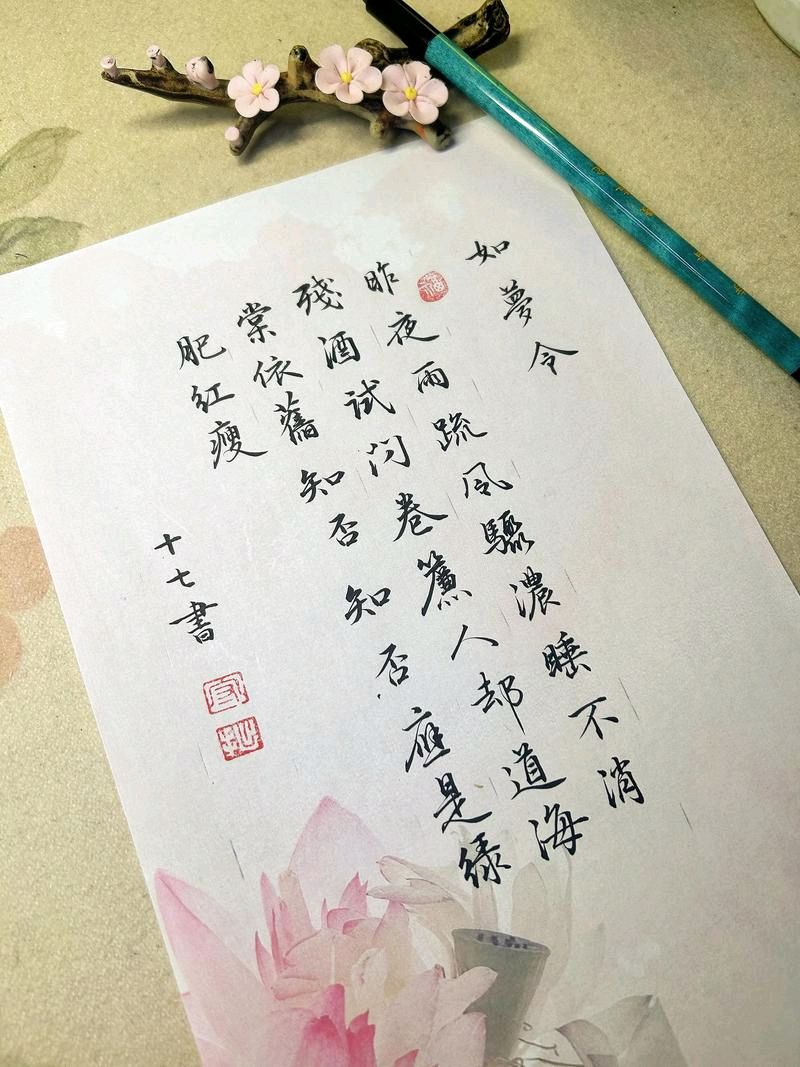 如夢令
福
昨夜雨疏風驟濃睡不消
殘酒試問卷簾人却道海
棠依舊知否知否應是綠
肥紅瘦
十七書